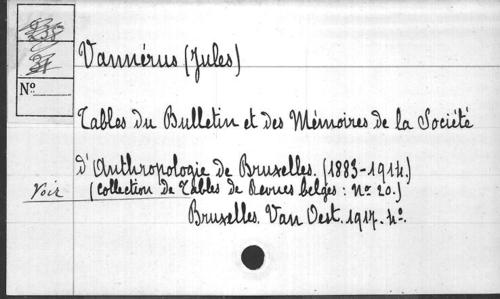 Vannérus (Jules)
Nº
Tables du Bulletin et des Mémoires de la Société
d'Anthropologie de Bruxelles. (1883-1914.)
Voir (collection de Tables de Revues belges : nº 20.)
Bruxelles. Van Oest. 1917. 4º.